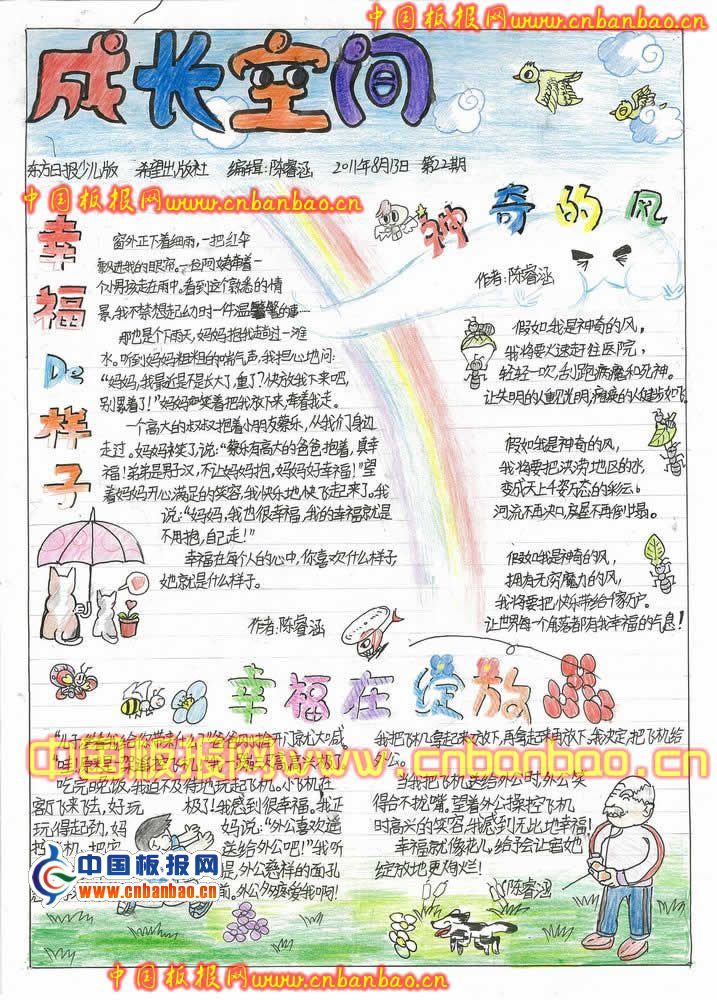 中国板报网www.cnbanbao.cn
成长空间
东方日报少儿版 希望出版社 编辑:陈睿涵 2011年8月13日 第22期
中国板报网www.cnbanbao.cn
幸福De样子
窗外正下着细雨,一把红伞
飘进我的眼帘。一位阿姨牵着一
个小男孩走在雨中。看到这个熟悉的情
景,我不禁想起幼时一件温馨的事……
那也是个下雨天,妈妈抱我趟过一滩
水。听到妈妈粗粗的喘气声,我担心地问:
“妈妈,我最近是不是长大了,重了?快放我下来吧,
别累着了!”妈妈声笑着把我放下来,牵着我走。
一个高大的叔叔抱着小朋友蔡乐,从我们身边
走过。妈妈笑了,说:“蔡乐有高大的爸爸抱着,真幸
福!弟弟是男子汉,不让妈妈抱,妈妈好幸福!”望
着妈妈开心满足的笑容,我快乐地快飞起来了。我
说:“妈妈,我也很幸福,我的幸福就是
不用抱,自己走!”
幸福在每个人的心中,你喜欢什么样子
她就是什么样子。
作者:陈睿涵
神奇的风
作者:陈睿涵
假如我是神奇的风,
我将要火速赶往医院,
轻轻一吹,刮跑病魔和死神。
让失明的人重见光明,瘫痪的人健步如飞。
假如我是神奇的风,
我将要把洪涝地区的水,
变成天上千姿万态的彩云。
河流不再决口,房屋不再倒塌。
假如我是神奇的风,
拥有无穷魔力的风,
我将要把快乐带给千家万户。
让世界每一个角落都有我幸福的气息!
幸福在绽放
中国板报网www.cnbanbao.cn
吃完晚饭,我迫不及待地玩起飞机。小飞机在
客厅飞来飞去,好玩极了!我感到很幸福。我正
玩得起劲,妈妈说:“外公喜欢遥
送给外公吧!”我听
提,外公慈祥的面孔
前。外公多疼爱我啊!
我把飞机拿起来又放下,再拿起来再放下。我决定,把飞机给
外公。
当我把飞机送给外公时,外公笑
得合不拢嘴,望着外公操控飞机
时高兴的笑容,我感到无比地幸福!
幸福就像花儿,给予会让它她
绽放地更灿烂!
陈睿涵
中国板报网
www.cnbanbao.cn
中国板报网www.cnbanbao.cn